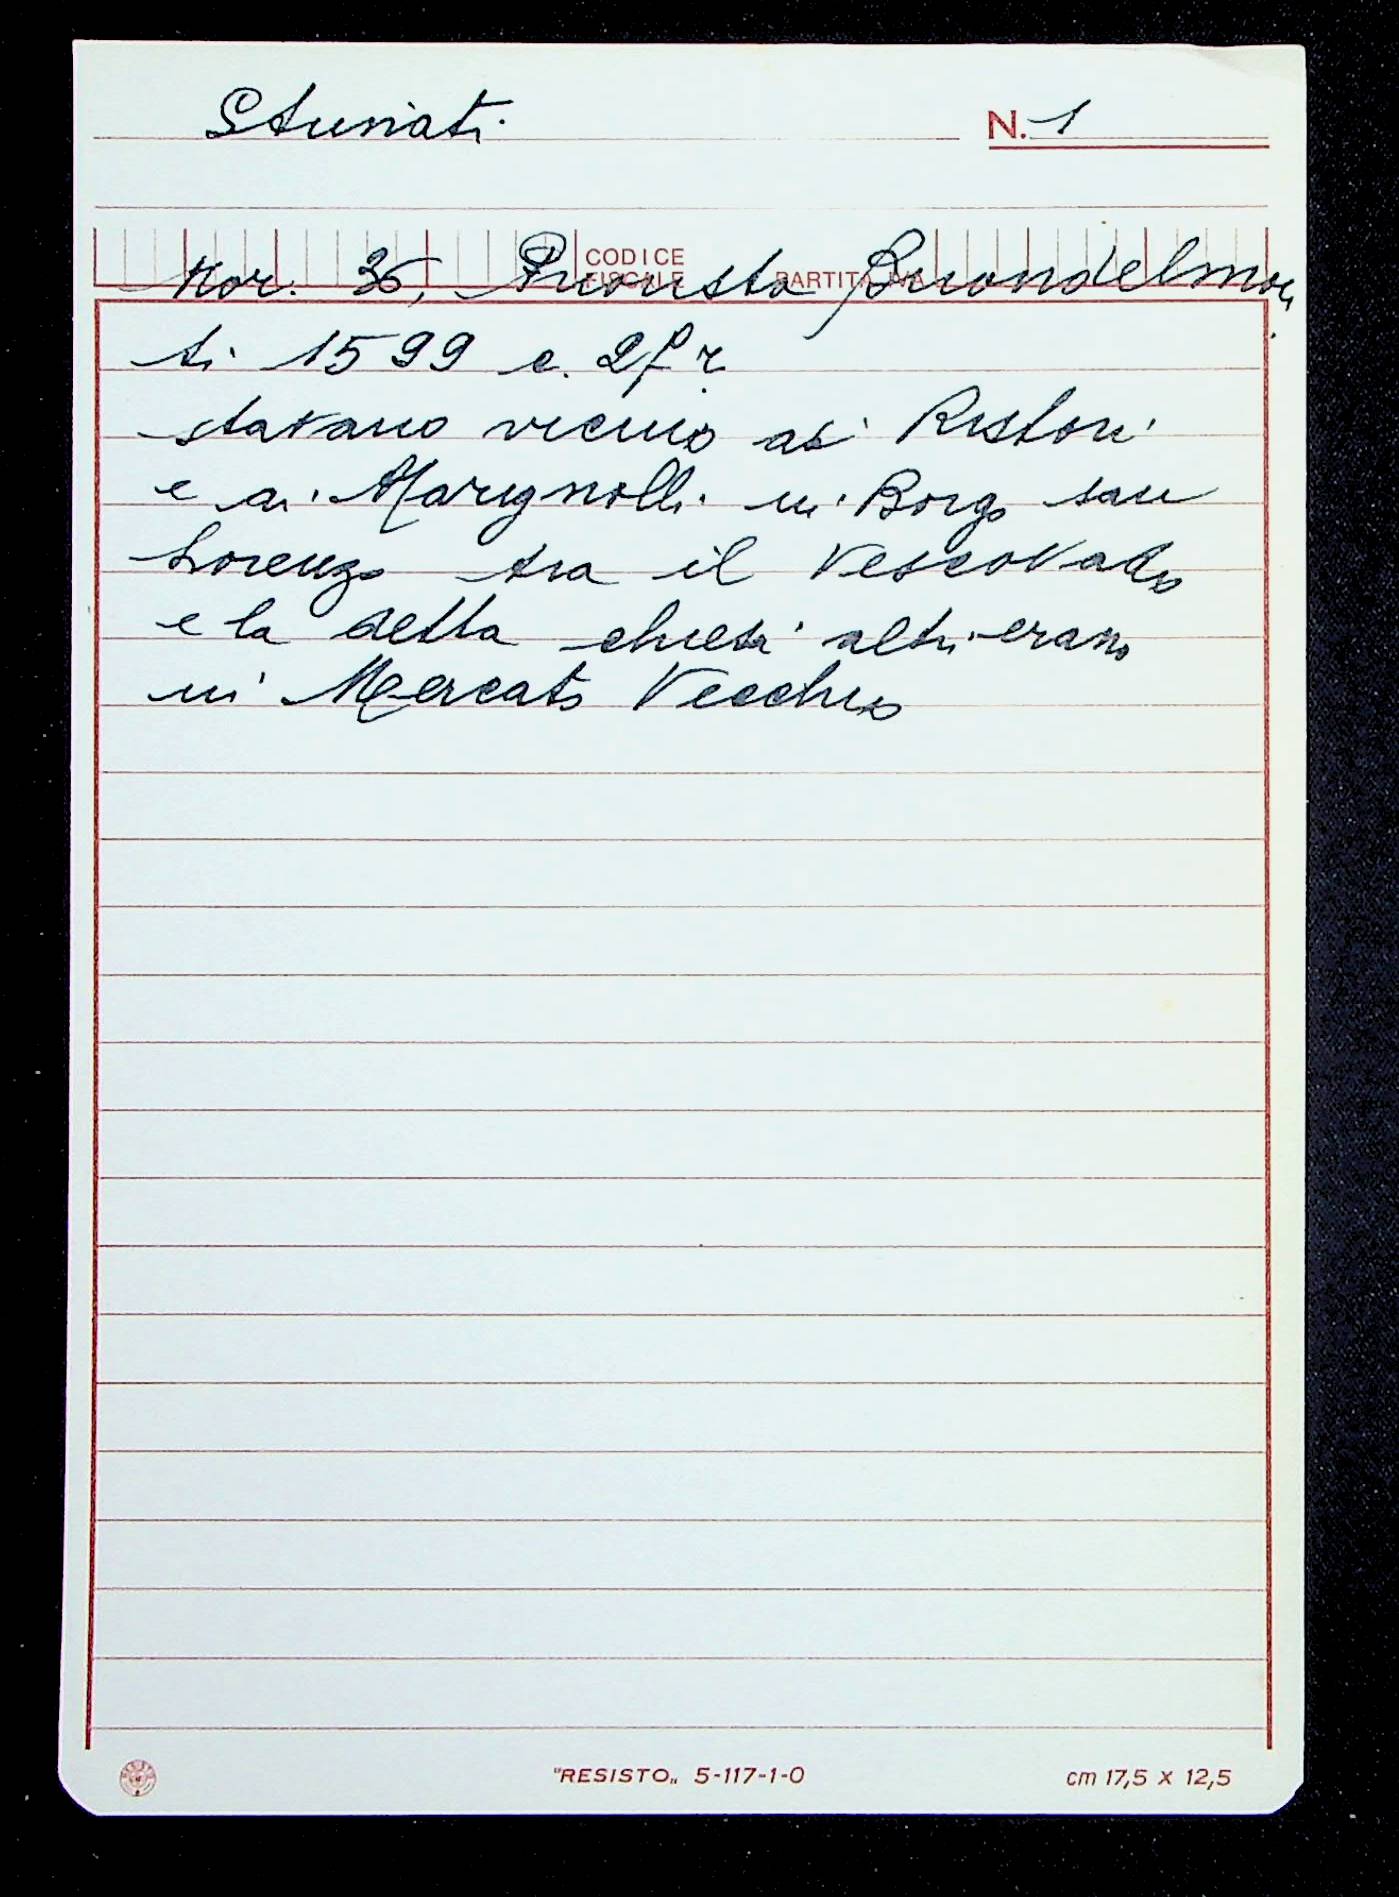 Stuniati
N. 1
CODICE FISCALE PARTITA IVA
Mor. 36, Priorista Buondelmon
ti 1599 c. 28 r.
stavano vicino ai Ristori
e ai Marignolli in Borgo san
Lorenzo tra il Vescovado
e la detta chiesa altri erano
in Mercato Vecchio
"RESISTO" 5-117-1-0
cm 17,5 x 12,5